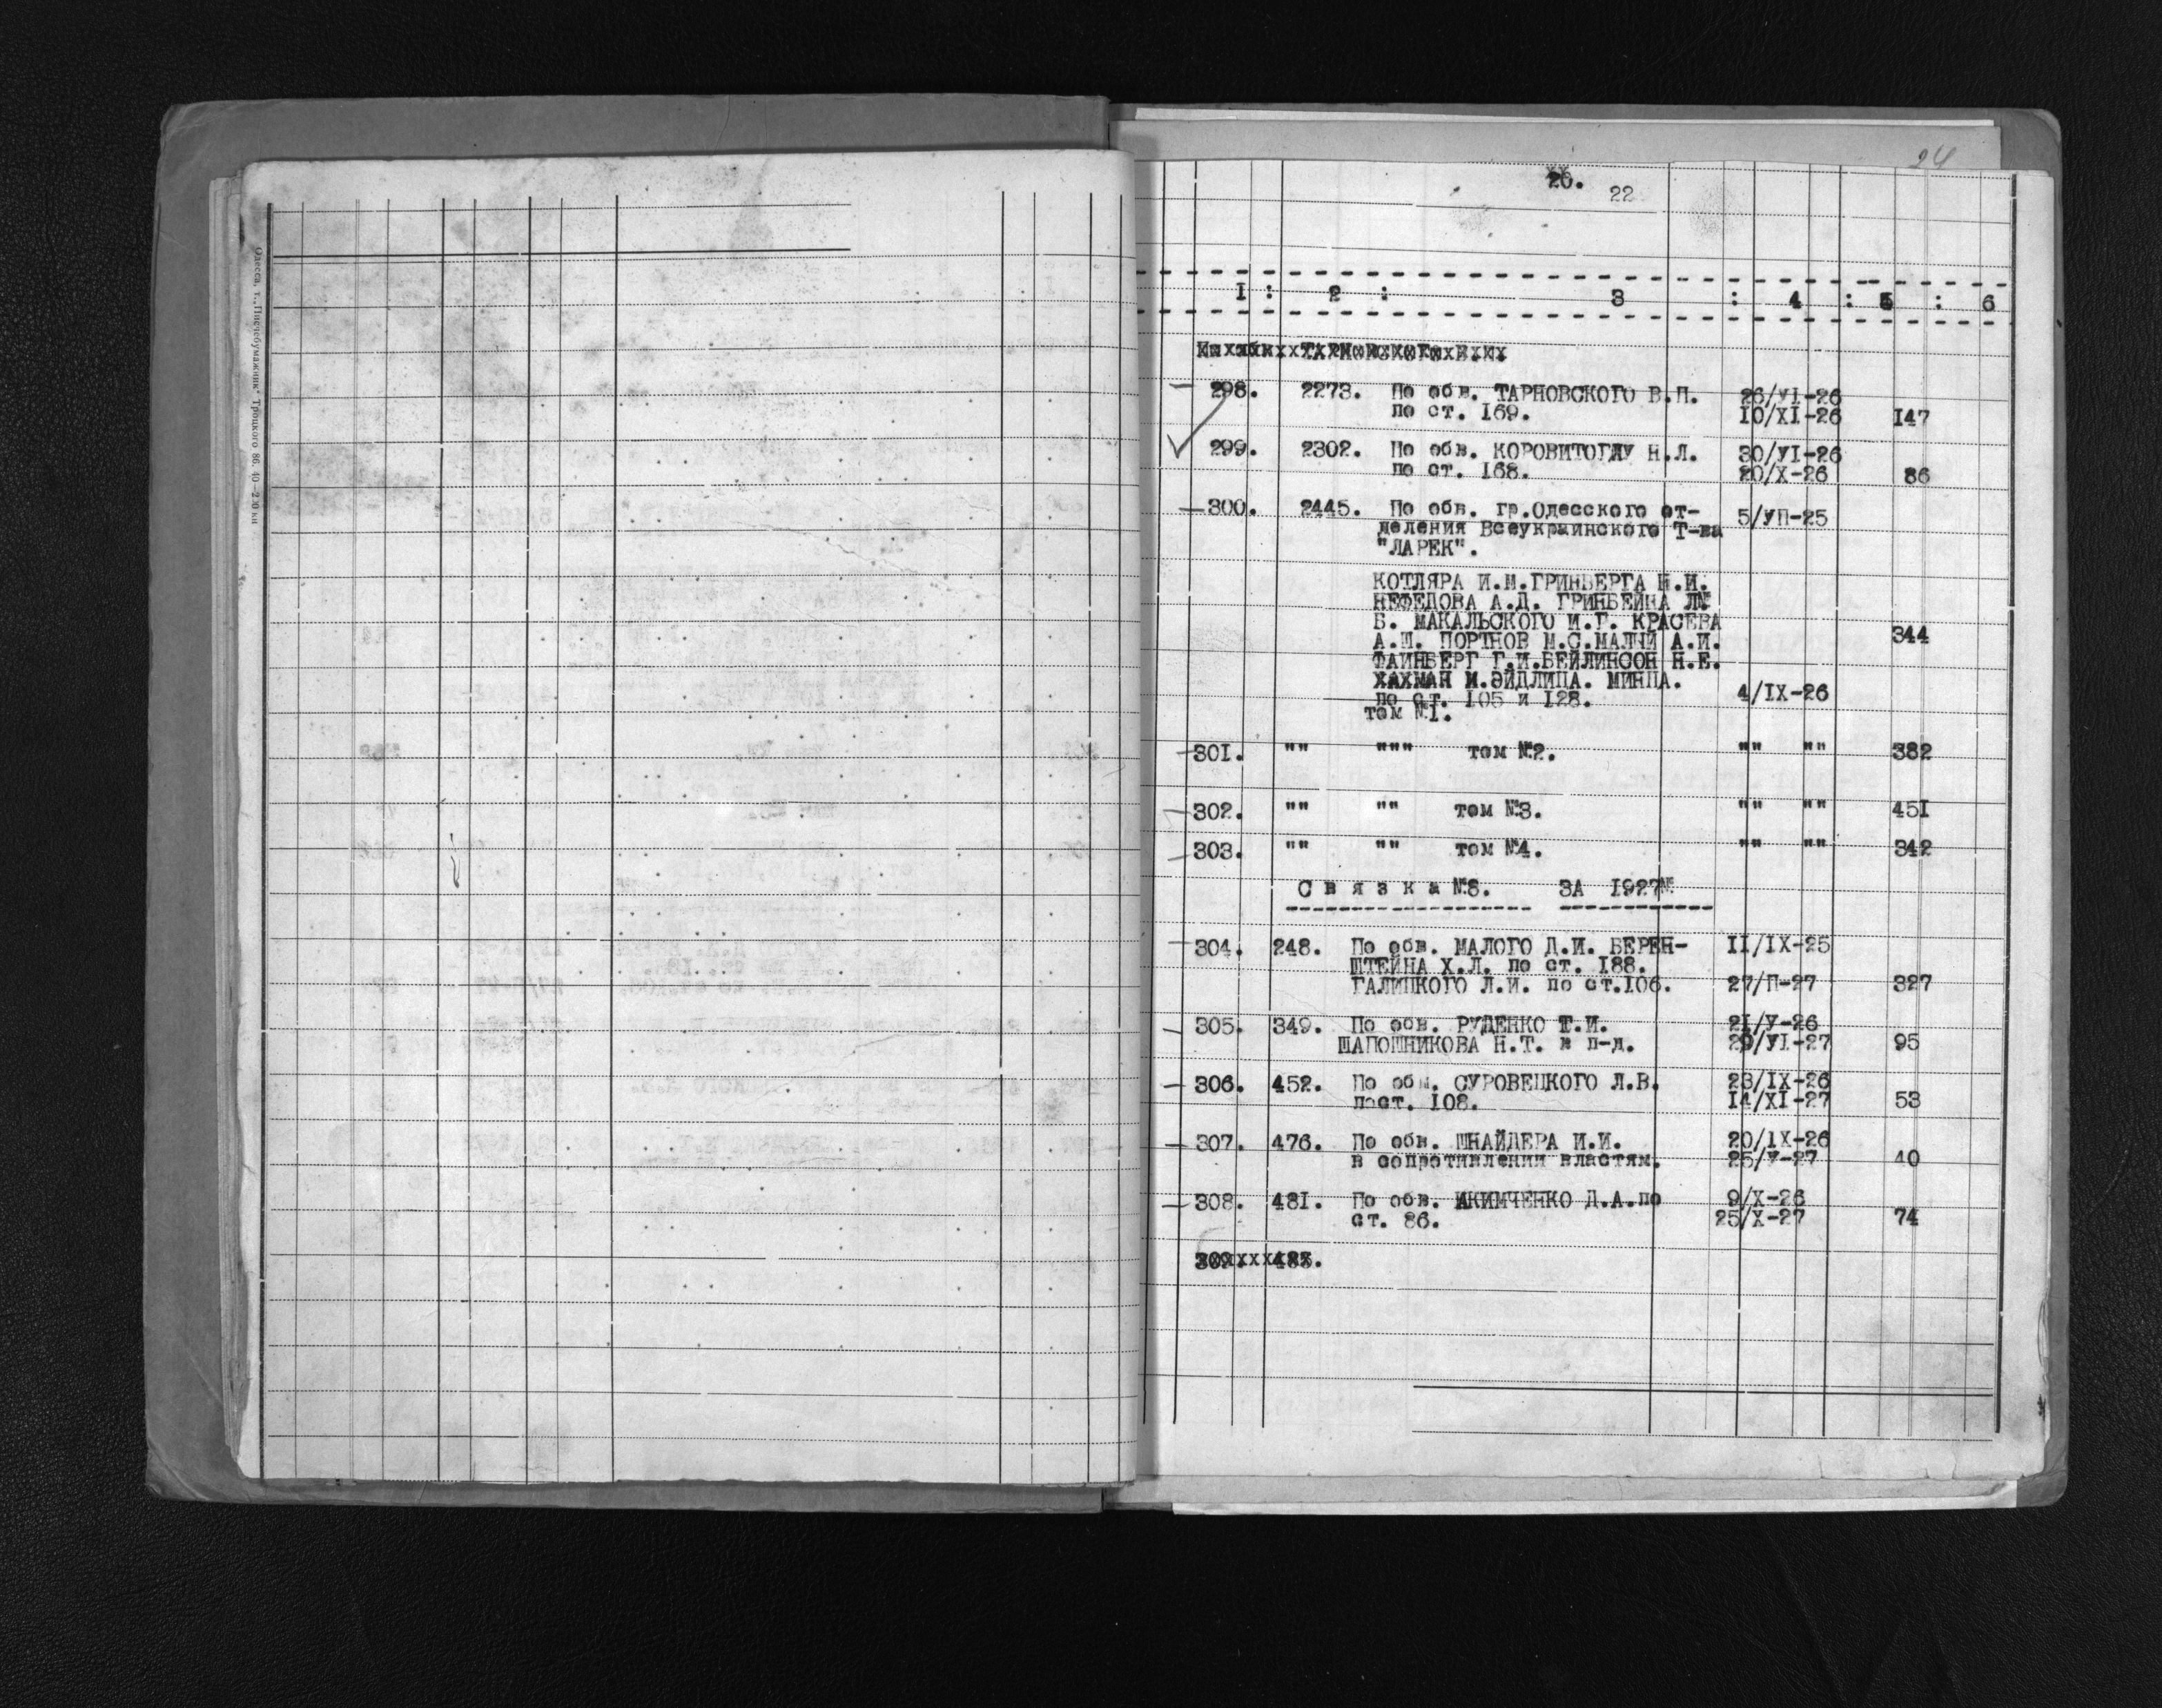 24
20.
22
1 : 2 : 3 : 4 : 5 : 6
298. 2273. По обв. ТАРНОВСКОГО В.П. 26/УІ-26
по ст. 169. 10/XI-26 147
299. 2302. По обв. КОРОВИТОГЛУ Н.Л. 30/УІ-26
по ст. 168. 20/X-26 86
300. 2445. По обв. гр.Одесского от- 5/УП-25
деления Всеукраинского Т-ва
"ЛАРЕК".
КОТЛЯРА И.М.ГРИНБЕРГА Н.И.
НЕФЕДОВА А.Д. ГРИНБЕЙНА Л.
Б. МАКАЛЬСКОГО И.Г. КРАСЕВА
А.Ш. ПОРТНОВ М.С.МАЛЫЙ А.И. 344
ФАИНБЕРГ Г.И.БЕЙЛИНСОН Н.Е.
ХАХМАН И.ЭЙДЛИЦА. МИНЦА.
по ст. 105 и 128. 4/IX-26
том №1.
301. "" """ том №2. "" "" 382
302. "" "" том №3. "" "" 451
303. "" "" том №4. "" "" 342
С в я з к а №8. ЗА 1927
304. 248. По обв. МАЛОГО Д.И. БЕРЕН- 11/IX-25
ШТЕЙНА Х.Л. по ст. 188.
ГАЛИЦКОГО Л.И. по ст.106. 27/П-27 327
305. 349. По обв. РУДЕНКО Т.И. 21/У-26
ШАПОШНИКОВА Н.Т. в п-д. 29/УІ-27 95
306. 452. По обв. СУРОВЕЦКОГО Л.В. 23/IX-26
пост. 108. 14/XI-27 53
307. 476. По обв. ШНАЙДЕРА И.И. 20/IX-26
в сопротивлении властям. 25/У-27 40
308. 481. По обв. ЯКИМЧЕНКО Д.А.по 9/X-26
ст. 86. 25/X-27 74
Одесса, т. „Писчебумажник" Троцкого 86.